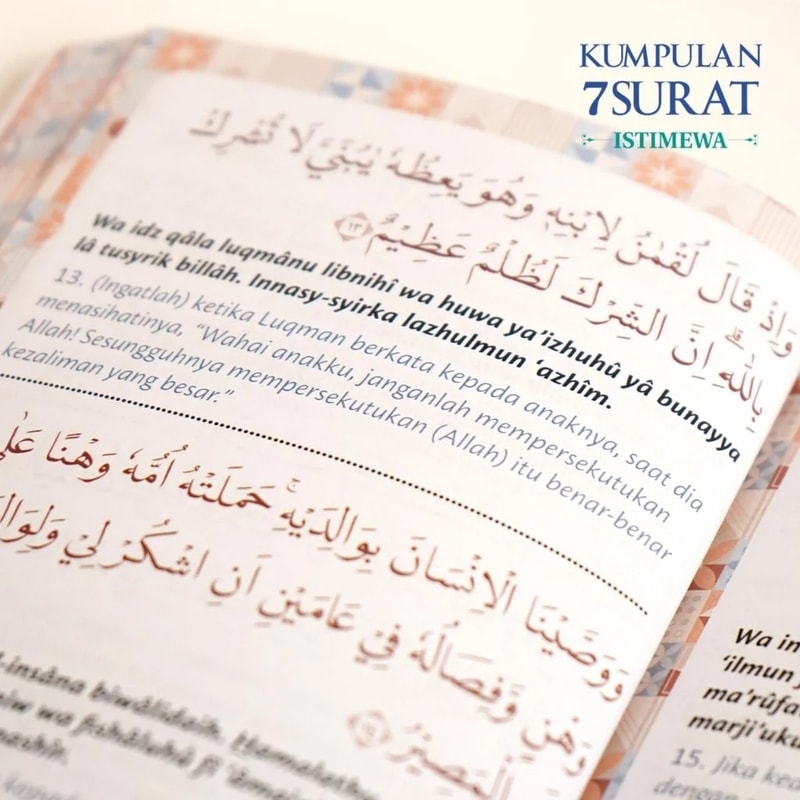 KUMPULAN
7SURAT
ISTIMEWA
وَاِذْ قَالَ لُقْمٰنُ لِابْنِهٖ وَهُوَ يَعِظُهٗ يٰبُنَيَّ لَا تُشْرِكْ
بِاللّٰهِ ۗاِنَّ الشِّرْكَ لَظُلْمٌ عَظِيْمٌ ١٣
Wa idz qâla luqmânu libnihî wa huwa ya‘izhuhû yâ bunayya
lâ tusyrik billâh. Innasy-syirka lazhulmun ‘azhîm.
13. (Ingatlah) ketika Luqman berkata kepada anaknya, saat dia
menasihatinya, “Wahai anakku, janganlah mempersekutukan
Allah! Sesungguhnya mempersekutukan (Allah) itu benar-benar
kezaliman yang besar.”
وَوَصَّيْنَا الْاِنْسَانَ بِوَالِدَيْهِۚ حَمَلَتْهُ اُمُّهٗ وَهْنًا
وَهْنٍ وَّفِصَالُهٗ فِيْ عَامَيْنِ اَنِ اشْكُرْ لِيْ
الْمَصِيْرُ ١٤
-insâna biwâlidaih. Hamalathu
wa fishâluhû fî
Wa in
‘ilmun
ma‘rûfa
marji‘uku
15. Jika keda
dengan